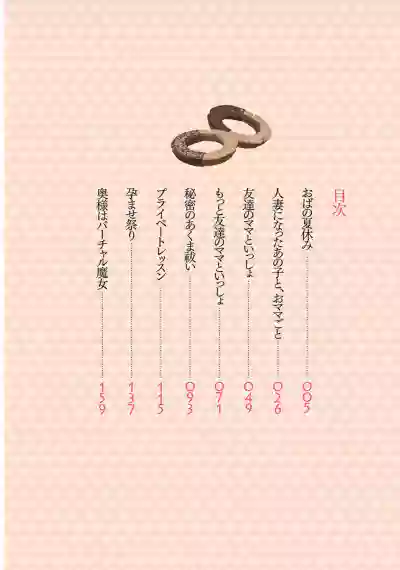 目次
おばの夏休み 005
人妻になったあの子と、おママごと 026
友達のママといっしょ 049
もっと友達のママといっしょ 071
秘密のあくま祓い 093
プライベートレッスン 115
孕ませ祭り 137
奥様はバーチャル魔女 159